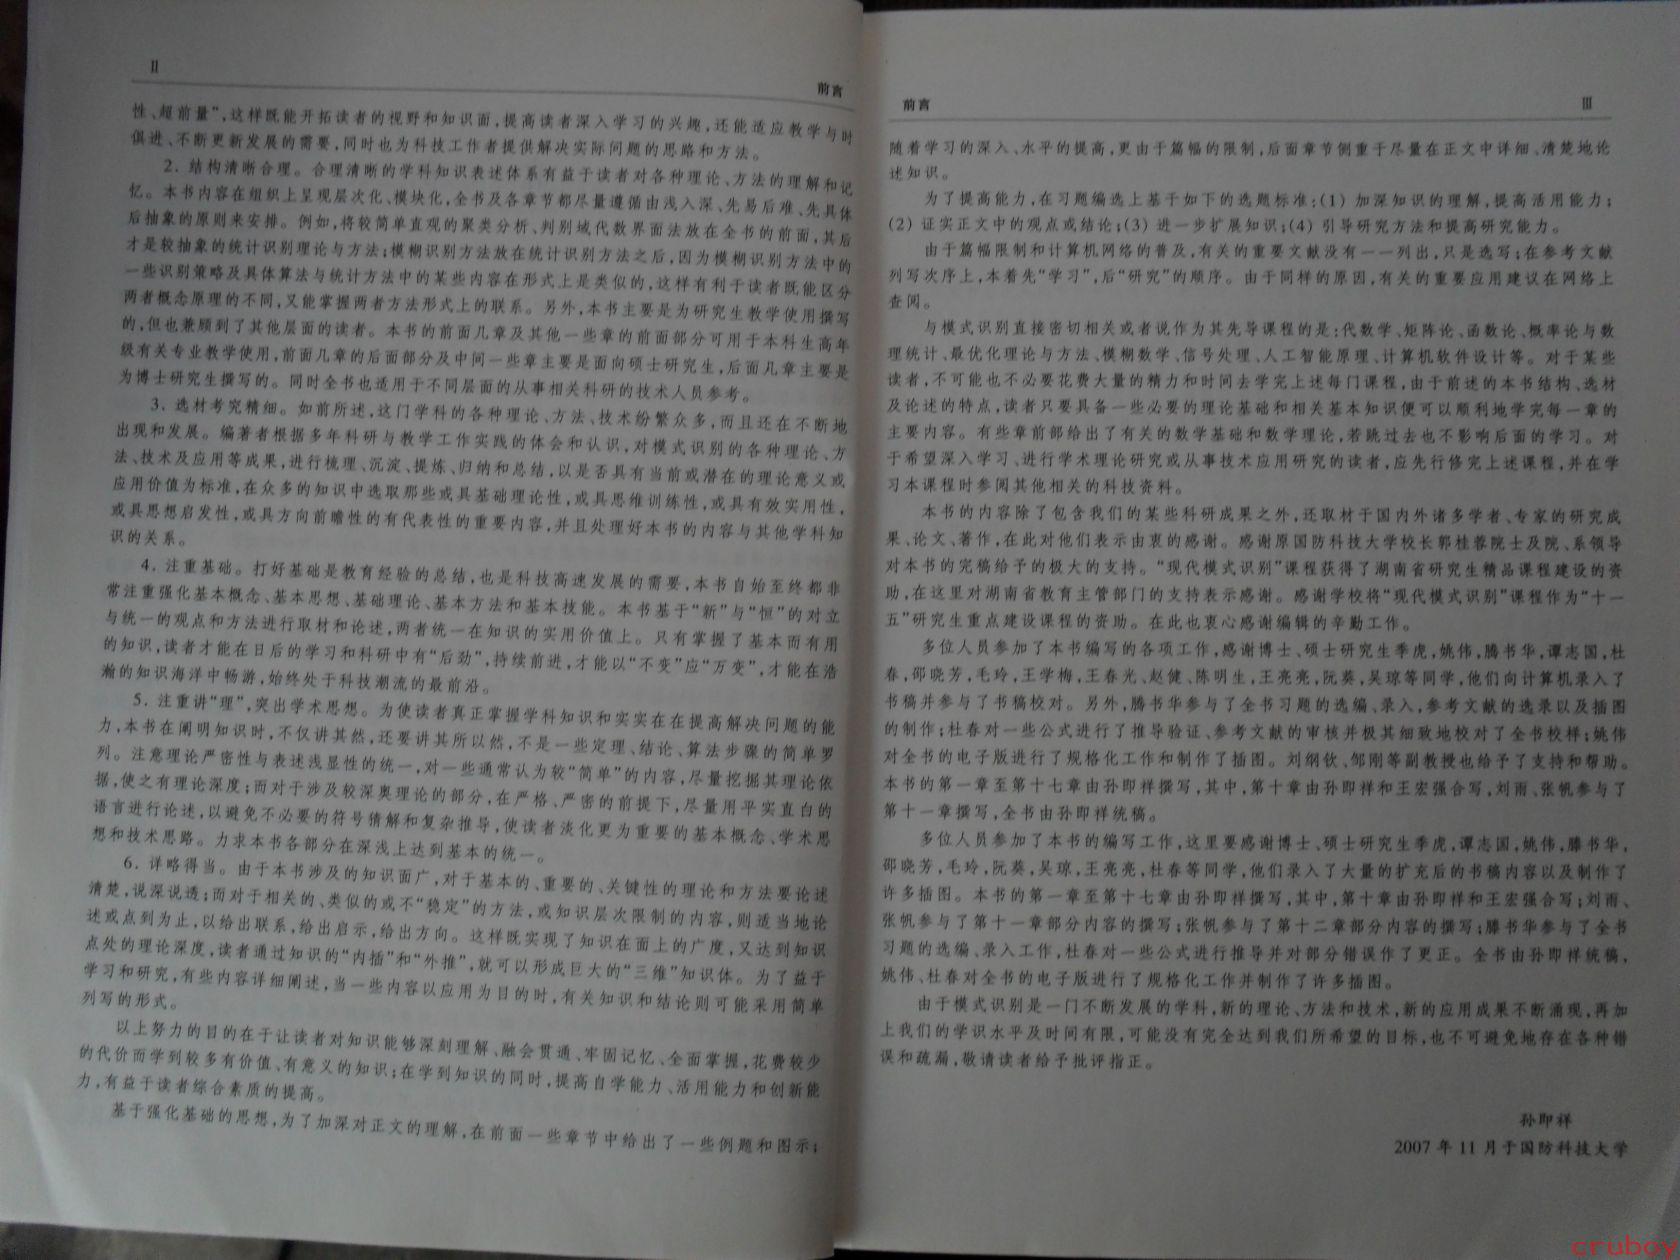 II
前言
性、超前量”,这样既能开拓读者的视野和知识面,提高读者深入学习的兴趣,还能适应教学与时
俱进、不断更新发展的需要,同时也为科技工作者提供解决实际问题的思路和方法。
2. 结构清晰合理。合理清晰的学科知识表述体系有益于读者对各种理论、方法的理解和记
忆。本书内容在组织上呈现层次化、模块化,全书及各章节都尽量遵循由浅入深、先易后难、先具体
后抽象的原则来安排。例如,将较简单直观的聚类分析、判别域代数界面法放在全书的前面,其后
才是较抽象的统计识别理论与方法;模糊识别方法放在统计识别方法之后,因为模糊识别方法中的
一些识别策略及具体算法与统计方法中的某些内容在形式上是类似的,这样有利于读者既能区分
两者概念原理的不同,又能掌握两者方法形式上的联系。另外,本书主要是为研究生教学使用撰写
的,但也兼顾到了其他层面的读者。本书的前面几章及其他一些章的前面部分可用于本科生高年
级有关专业教学使用,前面几章的后面部分及中间一些章主要是面向硕士研究生,后面几章主要是
为博士研究生撰写的。同时全书也适用于不同层面的从事相关科研的技术人员参考。
3. 选材考究精细。如前所述,这门学科的各种理论、方法、技术纷繁众多,而且还在不断地
出现和发展。编著者根据多年科研与教学工作实践的体会和认识,对模式识别的各种理论、方
法、技术及应用等成果,进行梳理、沉淀、提炼、归纳和总结,以是否具有当前或潜在的理论意义或
应用价值为标准,在众多的知识中选取那些或具基础理论性,或具思维训练性,或具有效实用性,
或具思想启发性,或具方向前瞻性的有代表性的重要内容,并且处理好本书的内容与其他学科知
识的关系。
4. 注重基础。打好基础是教育经验的总结,也是科技高速发展的需要,本书自始至终都非
常注重强化基本概念、基本思想、基础理论、基本方法和基本技能。本书基于“新”与“恒”的对立
与统一的观点和方法进行取材和论述,两者统一在知识的实用价值上。只有掌握了基本而有用
的知识,读者才能在日后的学习和科研中有“后劲”,持续前进,才能以“不变”应“万变”,才能在浩
瀚的知识海洋中畅游,始终处于科技潮流的最前沿。
5. 注重讲“理”,突出学术思想。为使读者真正掌握学科知识和实实在在提高解决问题的能
力,本书在阐明知识时,不仅讲其然,还要讲其所以然,不是一些定理、结论、算法步骤的简单罗
列。注意理论严密性与表述浅显性的统一,对一些通常认为较“简单”的内容,尽量挖掘其理论依
据,使之有理论深度;而对于涉及较深奥理论的部分,在严格、严密的前提下,尽量用平实直白的
语言进行论述,以避免不必要的符号猜解和复杂推导,使读者淡化更为重要的基本概念、学术思
想和技术思路。力求本书各部分在深浅上达到基本的统一。
6. 详略得当。由于本书涉及的知识面广,对于基本的、重要的、关键性的理论和方法要论述
清楚,说深说透;而对于相关的、类似的或不“稳定”的方法,或知识层次限制的内容,则适当地论
述或点到为止,以给出联系,给出启示,给出方向。这样既实现了知识在面上的广度,又达到知识
点处的理论深度,读者通过知识的“内插”和“外推”,就可以形成巨大的“三维”知识体。为了益于
学习和研究,有些内容详细阐述,当一些内容以应用为目的时,有关知识和结论则可能采用简单
列写的形式。
以上努力的目的在于让读者对知识能够深刻理解、融会贯通、牢固记忆、全面掌握,花费较少
的代价而学到较多有价值、有意义的知识;在学到知识的同时,提高自学能力、活用能力和创新能
力,有益于读者综合素质的提高。
基于强化基础的思想,为了加深对正文的理解,在前面一些章节中给出了一些例题和图示;
前言
III
随着学习的深入、水平的提高,更由于篇幅的限制,后面章节侧重于尽量在正文中详细、清楚地论
述知识。
为了提高能力,在习题编选上基于如下的选题标准:(1) 加深知识的理解,提高活用能力;
(2) 证实正文中的观点或结论;(3) 进一步扩展知识;(4) 引导研究方法和提高研究能力。
由于篇幅限制和计算机网络的普及,有关的重要文献没有一一列出,只是选写;在参考文献
列写次序上,本着先“学习”,后“研究”的顺序。由于同样的原因,有关的重要应用建议在网络上
查阅。
与模式识别直接密切相关或者说作为其先导课程的是:代数学、矩阵论、函数论、概率论与数
理统计、最优化理论与方法、模糊数学、信号处理、人工智能原理、计算机软件设计等。对于某些
读者,不可能也不必要花费大量的精力和时间去学完上述每门课程,由于前述的本书结构、选材
及论述的特点,读者只要具备一些必要的理论基础和相关基本知识便可以顺利地学完每一章的
主要内容。有些章前部给出了有关的数学基础和数学理论,若跳过去也不影响后面的学习。对
于希望深入学习、进行学术理论研究或从事技术应用研究的读者,应先行修完上述课程,并在学
习本课程时参阅其他相关的科技资料。
本书的内容除了包含我们的某些科研成果之外,还取材于国内外诸多学者、专家的研究成
果、论文、著作,在此对他们表示由衷的感谢。感谢原国防科技大学校长郭桂蓉院士及院、系领导
对本书的完稿给予的极大的支持。“现代模式识别”课程获得了湖南省研究生精品课程建设的资
助,在这里对湖南省教育主管部门的支持表示感谢。感谢学校将“现代模式识别”课程作为“十一
五”研究生重点建设课程的资助。在此也衷心感谢编辑的辛勤工作。
多位人员参加了本书编写的各项工作,感谢博士、硕士研究生季虎,姚伟,滕书华,谭志国,杜
春,邵晓芳,毛玲,王学梅,王春光、赵健、陈明生,王亮亮,阮葵,吴琼等同学,他们向计算机录入了
书稿并参与了书稿校对。另外,滕书华参与了全书习题的选编、录入,参考文献的选录以及插图
的制作;杜春对一些公式进行了推导验证、参考文献的审核并极其细致地校对了全书校样;姚伟
对全书的电子版进行了规格化工作和制作了插图。刘纲钦、邹刚等副教授也给予了支持和帮助。
本书的第一章至第十七章由孙即祥撰写,其中,第十章由孙即祥和王宏强合写,刘雨、张帆参与了
第十一章撰写,全书由孙即祥统稿。
多位人员参加了本书的编写工作,这里要感谢博士、硕士研究生季虎,谭志国,姚伟,滕书华,
邵晓芳,毛玲,阮葵,吴琼,王亮亮,杜春等同学,他们录入了大量的扩充后的书稿内容以及制作了
许多插图。本书的第一章至第十七章由孙即祥撰写,其中,第十章由孙即祥和王宏强合写;刘雨、
张帆参与了第十一章部分内容的撰写;张帆参与了第十二章部分内容的撰写;滕书华参与了全书
习题的选编、录入工作,杜春对一些公式进行推导并对部分错误作了更正。全书由孙即祥统稿,
姚伟、杜春对全书的电子版进行了规格化工作并制作了许多插图。
由于模式识别是一门不断发展的学科,新的理论、方法和技术,新的应用成果不断涌现,再加
上我们的学识水平及时间有限,可能没有完全达到我们所希望的目标,也不可避免地存在各种错
误和疏漏,敬请读者给予批评指正。
孙即祥
2007 年 11 月于国防科技大学
cruboy